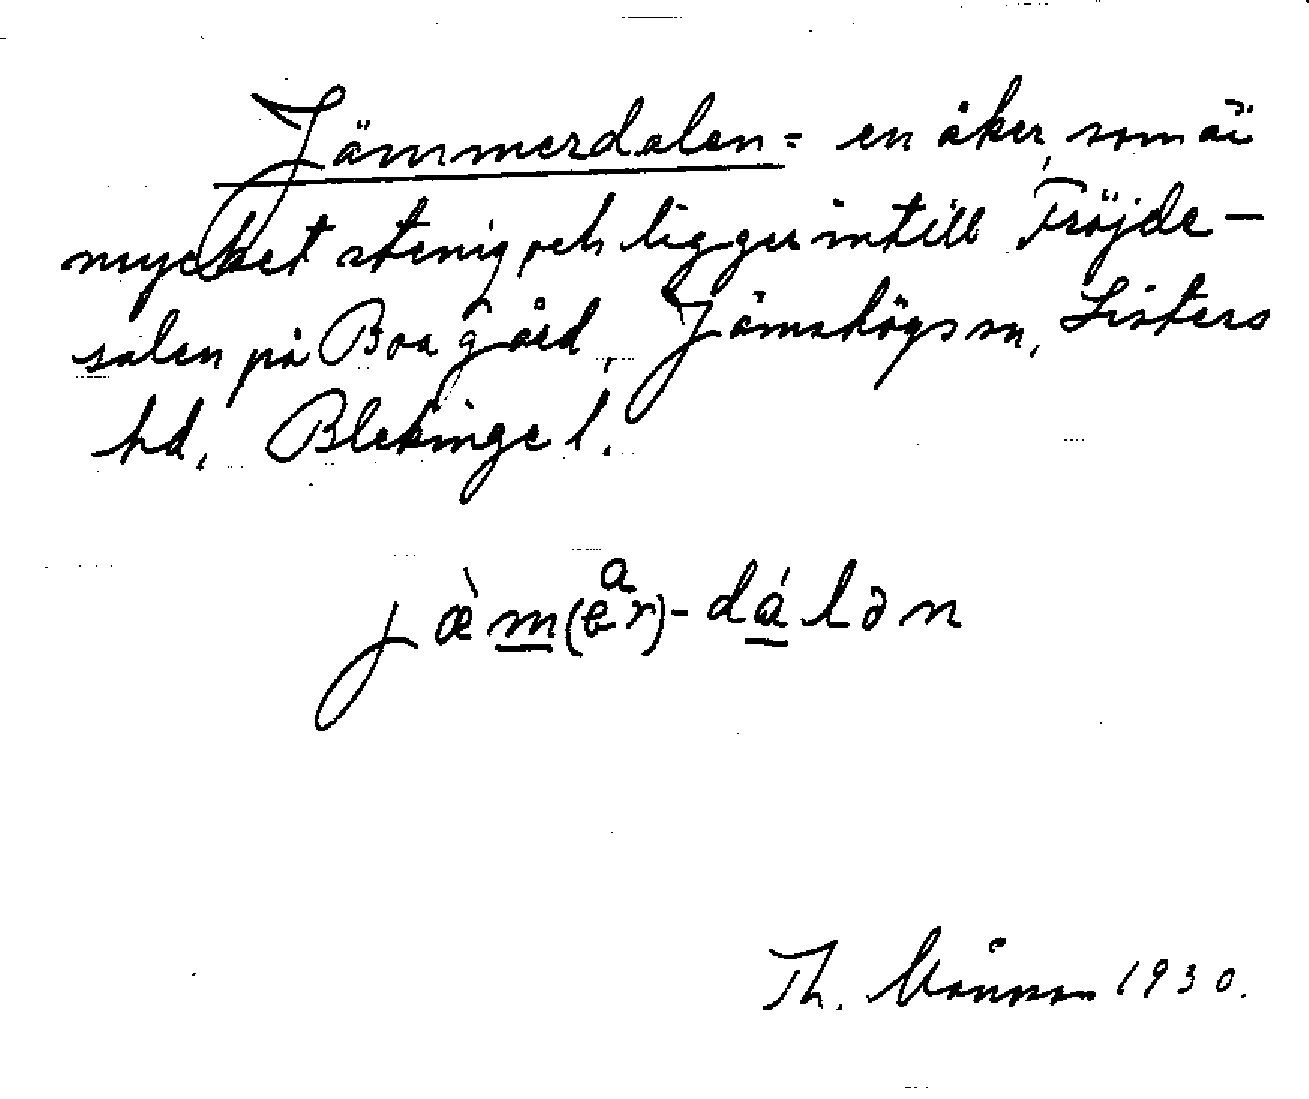 Jämmerdalen = en åker, som är
mycket stenig och ligger intill Fröjde-
salen på Boa gård, Jämshögs sn, Listers
hd, Blekinge l.
a
jæ̀m(er)-dálən
Th. 1930.